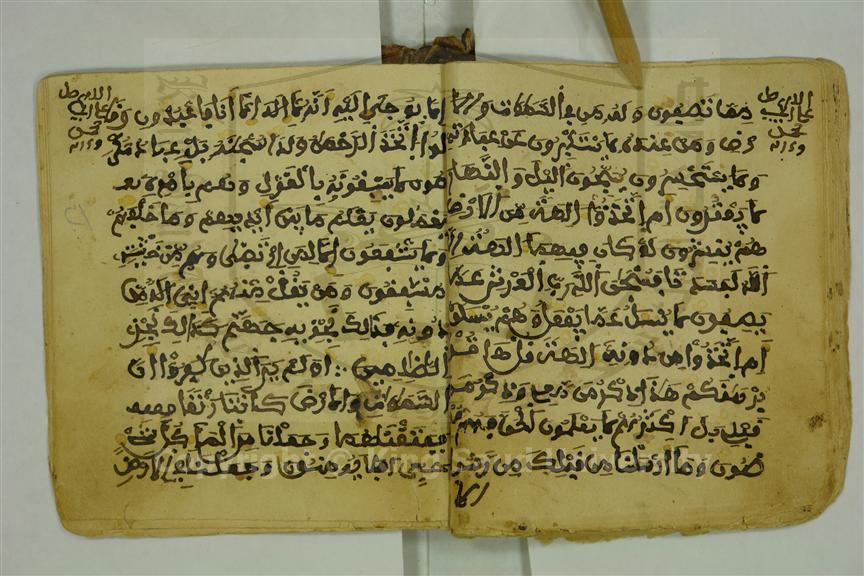 مما تصفون وله من في السموات والا
رض ومن عنده لا يستكبرون عن عبادته
ولا يستحسرون يسبحون اليل والنهار
لا يفترون ام اتخذوا الهة من الارض
هم ينشرون لو كان فيهما الهة الا
الله لفسدتا فسبحن الله رب العرش عما
يصفون لا يسئل عما يفعل وهم يسئلون
ام اتخذوا من دونه الهة قل هاتوا
برهنكم هذا ذكر من معي وذكر من
قبلي بل اكثرهم لا يعلمون الحق فهم معر
ضون وما ارسلنا من قبلك من رسول
الا
الا يوحى اليه انه لا اله الا انا فاعبدون وقا
لوا اتخذ الرحمن ولدا سبحنه بل عباد مكر
مون لا يسبقونه بالقول وهم بامره يع
يعملون يعلم ما بين ايديهم وما خلفهم
ولا يشفعون الا لمن ارتضى وهم من خشيته
مشفقون ومن يقل منهم اني اله من
دونه فذلك نجزيه جهنم كذلك نجزي
الظلمين اولم ير الذين كفروا ان
السموات والارض كانتا رتقا
ففتقنهما وجعلنا من الماء كل شيء
حي افلا يومنون وجعلنا في الارض